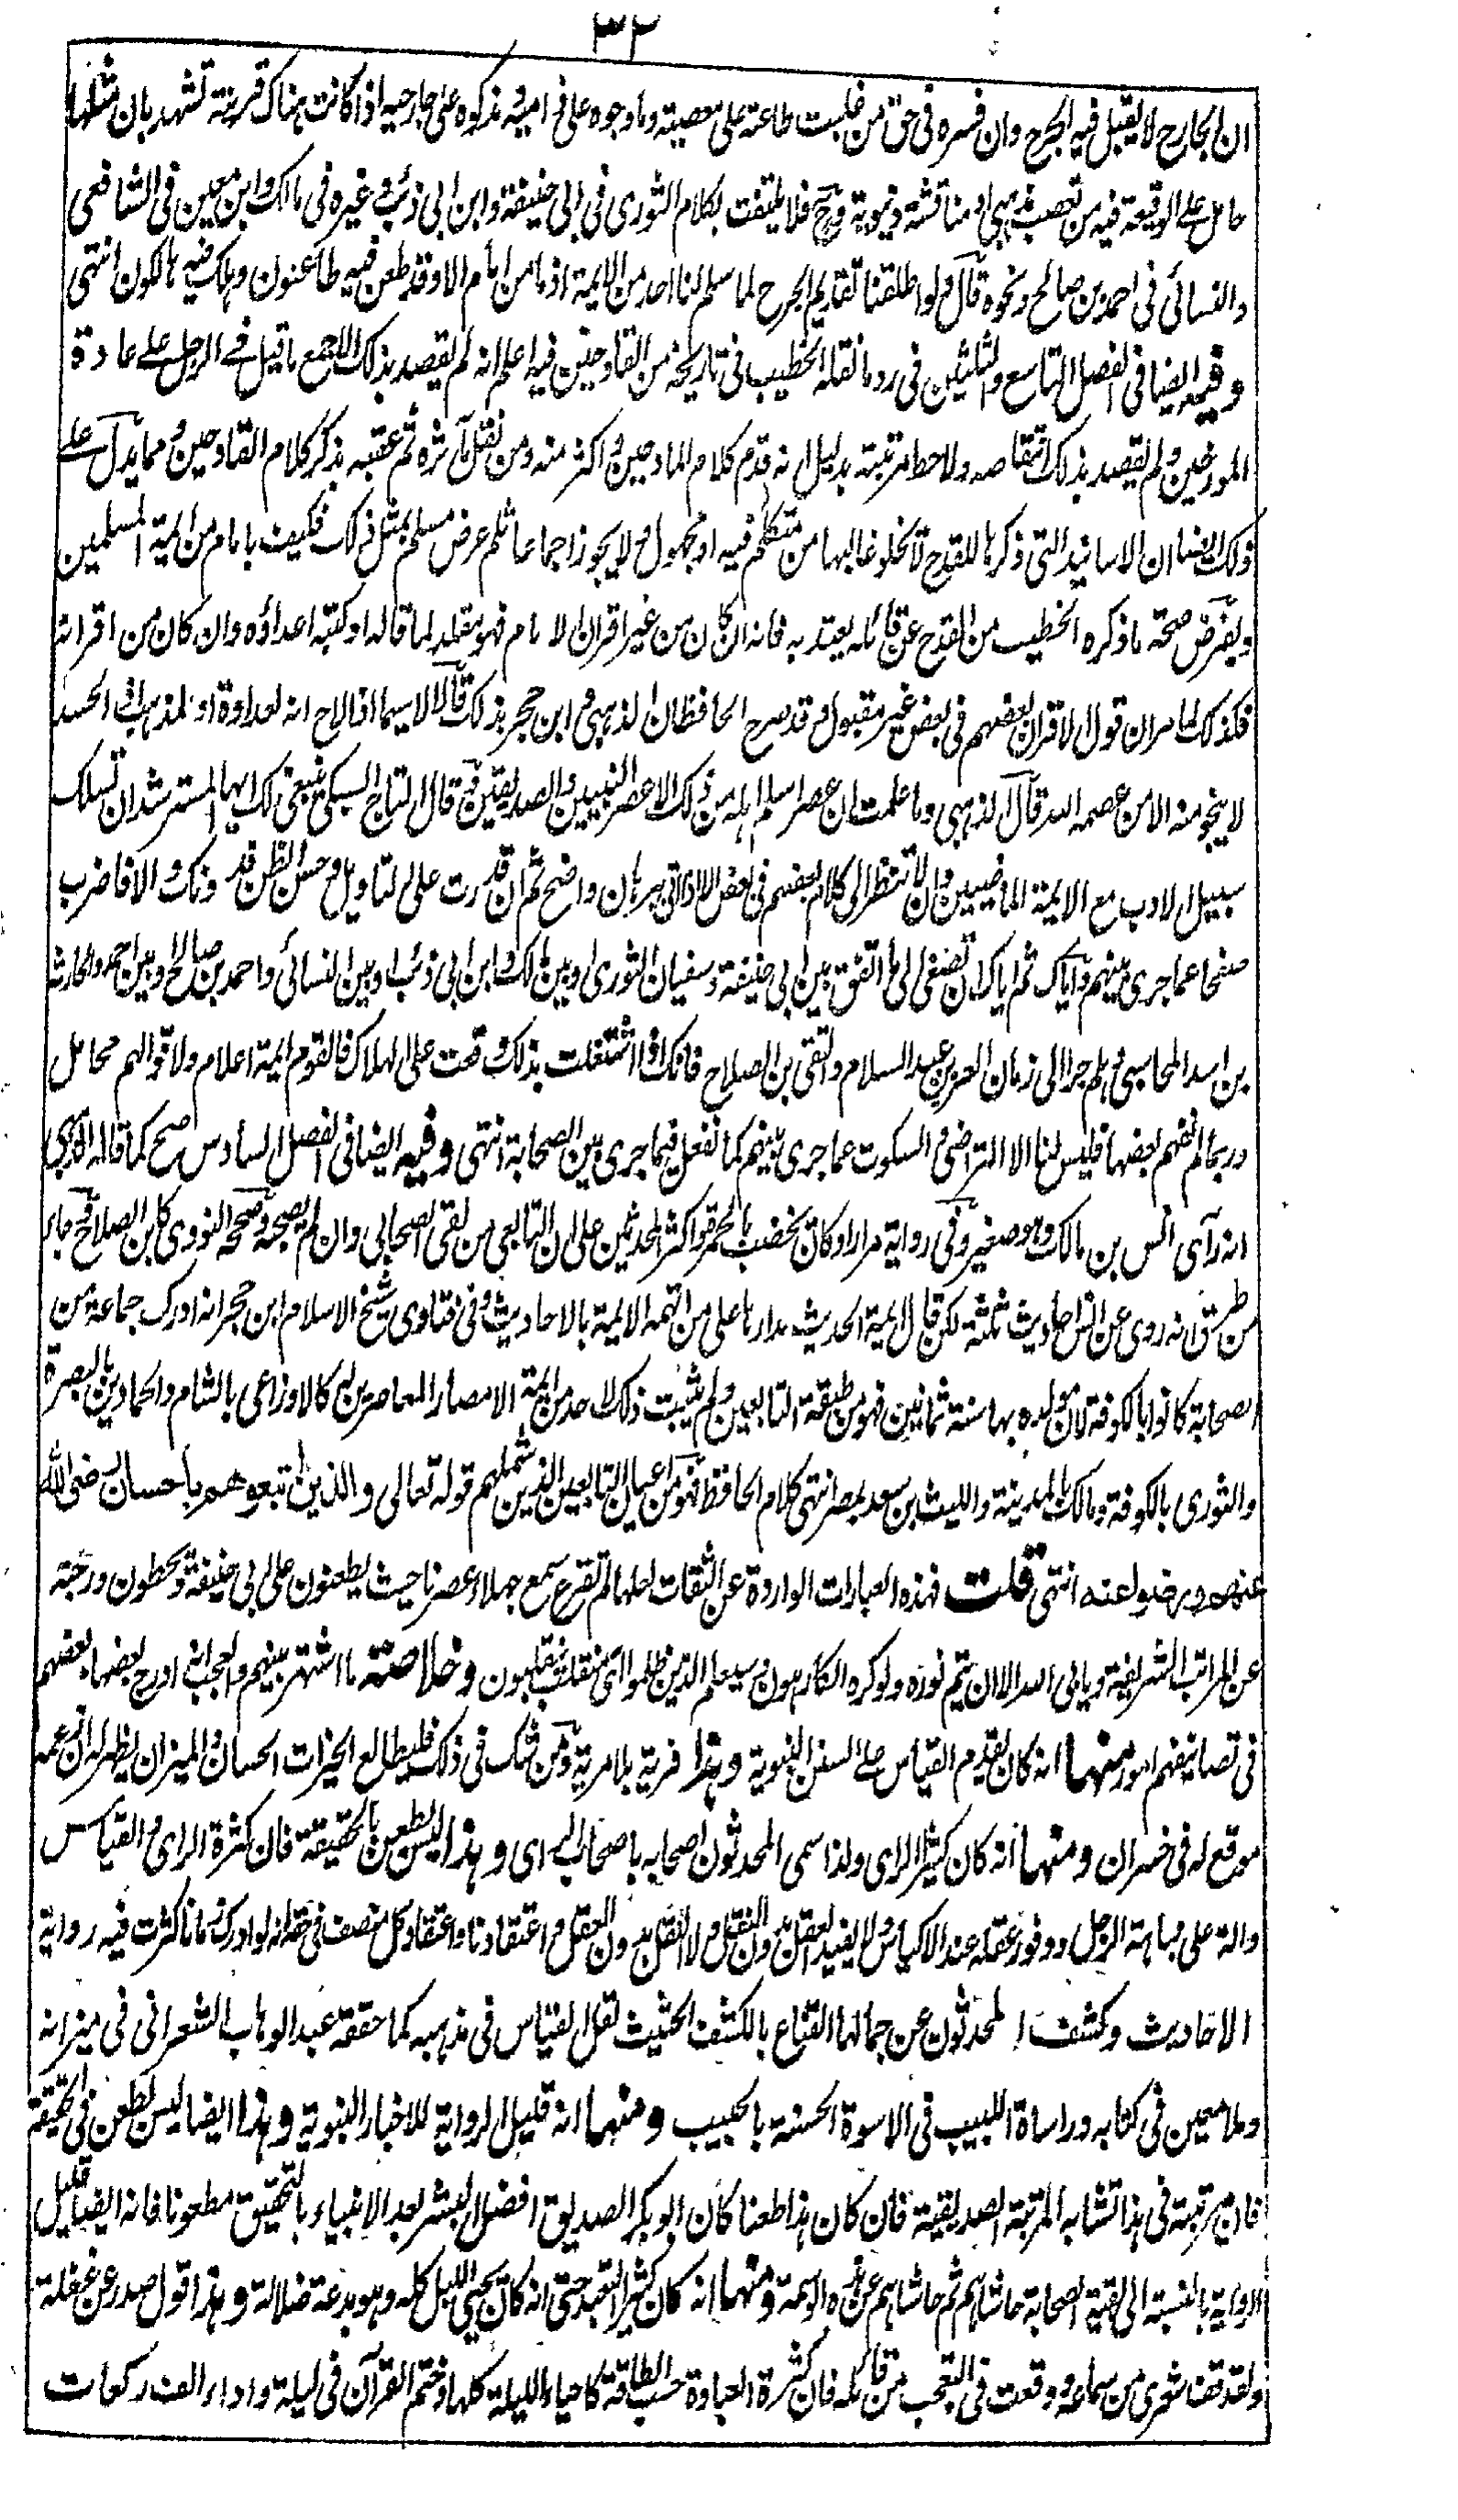 ٣٢
ان الجارح لا يقبل فيه الجرح وان فسره فى حق من غلبت طاعته على معصيته ومادحوه على ذاميه ومذكوه على جارحيه اذا كانت هناك قرينة تشهد بان مثلها
حامل على الوقيعة فيه من تعصب مذهبى او مناقشة دنيوية وح فلا يلتفت لكلام الثورى فى ابى حنيفة وابن ابى ذئب وغيره فى مالك وابن معين فى الشافعى
والنسائى فى احمد بن صالح ونحوه قال ولو اطلقنا تقديم الجرح لما سلم لنا احد من الايمة اذ ما من امام الا وقد طعن فيه طاعنون وهلك فيه هالكون انتهى
وفيه ايضا فى الفصل التاسع والثلثين فى رد ما نقله الخطيب فى تاريخه من القادحين فيه اعلم انه لم يقصد بذلك الا جمع ما قيل فى الرجل على عادة
المورخين ولم يقصد بذلك انتقاصه ولا حط مرتبته بدليل انه قدم كلام المادحين واكثر منه ومن نقل مآثره ثم عقبه بذكر كلام القادحين ومما يدل على
ذلك ايضا ان الاسانيد التى ذكرها للقدح لا تخلو غالبها من متكلم فيه او مجهول ولا يجوز اجماعا ثلم عرض مسلم بمثل ذلك فكيف بامام من ايمة المسلمين
وبفرض صحة ما ذكره الخطيب من القدح عن قائله يعتد به فانه ان كان من غير اقران الامام فهو مقلد لما قاله او كتبه اعداؤه وان كان من اقرانه
فكذلك لما مر ان قول الاقران بعضهم فى بعض غير مقبول وقد صرح الحافظان الذهبى وابن حجر بذلك قالا لا سيما اذا لاح انه لعداوة او لمذهب اذ الحسد
لا ينجو منه الا من عصمه الله قال الذهبى وما علمت ان عصرا سلم اهله من ذلك الا عصر النبيين والصديقين وقال التاج السبكى ينبغى لك ايها المسترشد ان تسلك
سبيل الادب مع الايمة الماضيين وان لا تنظر الى كلام بعضهم فى بعض الا اذا اتى ببرهان واضح ثم ان قدرت على التاويل وحسن الظن فدونك والا فاضرب
صفحا عما جرى بينهم واياك ثم اياك ان تصغى الى ما اتفق بين ابى حنيفة وسفيان الثورى او بين مالك وابن ابى ذئب او بين النسائى واحمد بن صالح او بين احمد والحارث
بن اسد المحاسبى وهلم جرا الى زمان العز بن عبد السلام والتقى بن الصلاح فانك اذا اشتغلت بذلك وقعت على الهلاك فالقوم ايمة اعلام ولاقوالهم محامل
وربما لم نفهم بعضها فليس لنا الا التراضى والسكوت عما جرى بينهم كما نفعل فيما جرى بين الصحابة انتهى وفيه ايضا فى الفصل السادس صح كما قاله الذهبى
انه رآى انس بن مالك وهو صغير وفى رواية مرارا وكان يخضب بالحمرة واكثر المحدثين على ان التابعى من لقى الصحابى وان لم يصحبه وصححه النووى كابن الصلاح وجاء
من طرق انه روى عن انس احاديث ثلثة لكن قال ايمة الحديث مدارها على من اتهمه الايمة بالاحاديث وفى فتاوى شيخ الاسلام ابن حجر انه ادرك جماعة من
الصحابة كانوا بالكوفة لان مولده بها سنة ثمانين فهو من طبقة التابعين ولم يثبت ذلك لاحد من ايمة الامصار المعاصرين له كالاوزاعى بالشام والحمادين بالبصرة
والثورى بالكوفة ومالك بالمدينة والليث بن سعد بمصر انتهى كلام الحافظ فهو من اعيان التابعين الذين شملهم قوله تعالى والذين اتبعوهم باحسان رضى الله
عنهم ورضوا عنه انتهى قلت فهذه العبارات الواردة عن الثقات لعلها لم تقرع سمع جهلاء عصرنا حيث يطعنون على ابى حنيفة ويحطون درجته
عن المراتب الشريفة ويابى الله الا ان يتم نوره ولو كره الكارهون وسيعلم الذين ظلموا اى منقلب ينقلبون وخلاصة ما اشتهر بينهم والعجب انه ادرج بعضها بعضهم
فى تصانيفهم امور منها انه كان يقدم القياس على السنن النبوية وهذا فرية بلا مرية ومن شك فى ذلك فليطالع الخيرات الحسان والميزان يظهر له ان زعمه
موقع له فى خسران ومنها انه كان كثير الراى ولذا سمى المحدثون اصحابه باصحاب الراى وهذا ليس بطعن بالحقيقة فان كثرة الراى والقياس
دالة على نباهة الرجل ووفور عقله عند الاكياس ولا يفيد العقل بدون النقل ولا النقل بدون العقل واعتقادنا واعتقاد كل منصف فى حقه انه لو ادرك زمانا كثرت فيه رواية
الاحاديث وكشف المحدثون عن جمالها القناع بالكشف الحثيث لقل القياس فى مذهبه كما حققه عبد الوهاب الشعرانى فى ميزانه
وملا معين فى كتابه دراسات اللبيب فى الاسوة الحسنة بالحبيب ومنها انه قليل الرواية للاخبار النبوية وهذا ايضا ليس بطعن فى الحقيقة
فان مرتبته فى هذا تشابه المرتبة الصديقية فان كان هذا طعنا كان ابو بكر الصديق افضل البشر بعد الانبياء بالتحقيق مطعونا فانه ايضا قليل
الرواية بالنسبة الى بقية الصحابة حاشاهم ثم حاشاهم عن هذه الوسمة ومنها انه كان كثير التعبد حتى انه كان يحيى الليل كله وهو بدعة ضلالة وهذا قول صدر عن غفلة
ولقد قف شعرى من سماعه ووقعت فى التعجب من قائله فان كثرة العبادة حسب الطاقة كاحياء الليلة كلها وختم القرآن فى ليلة واداء الف ركعات